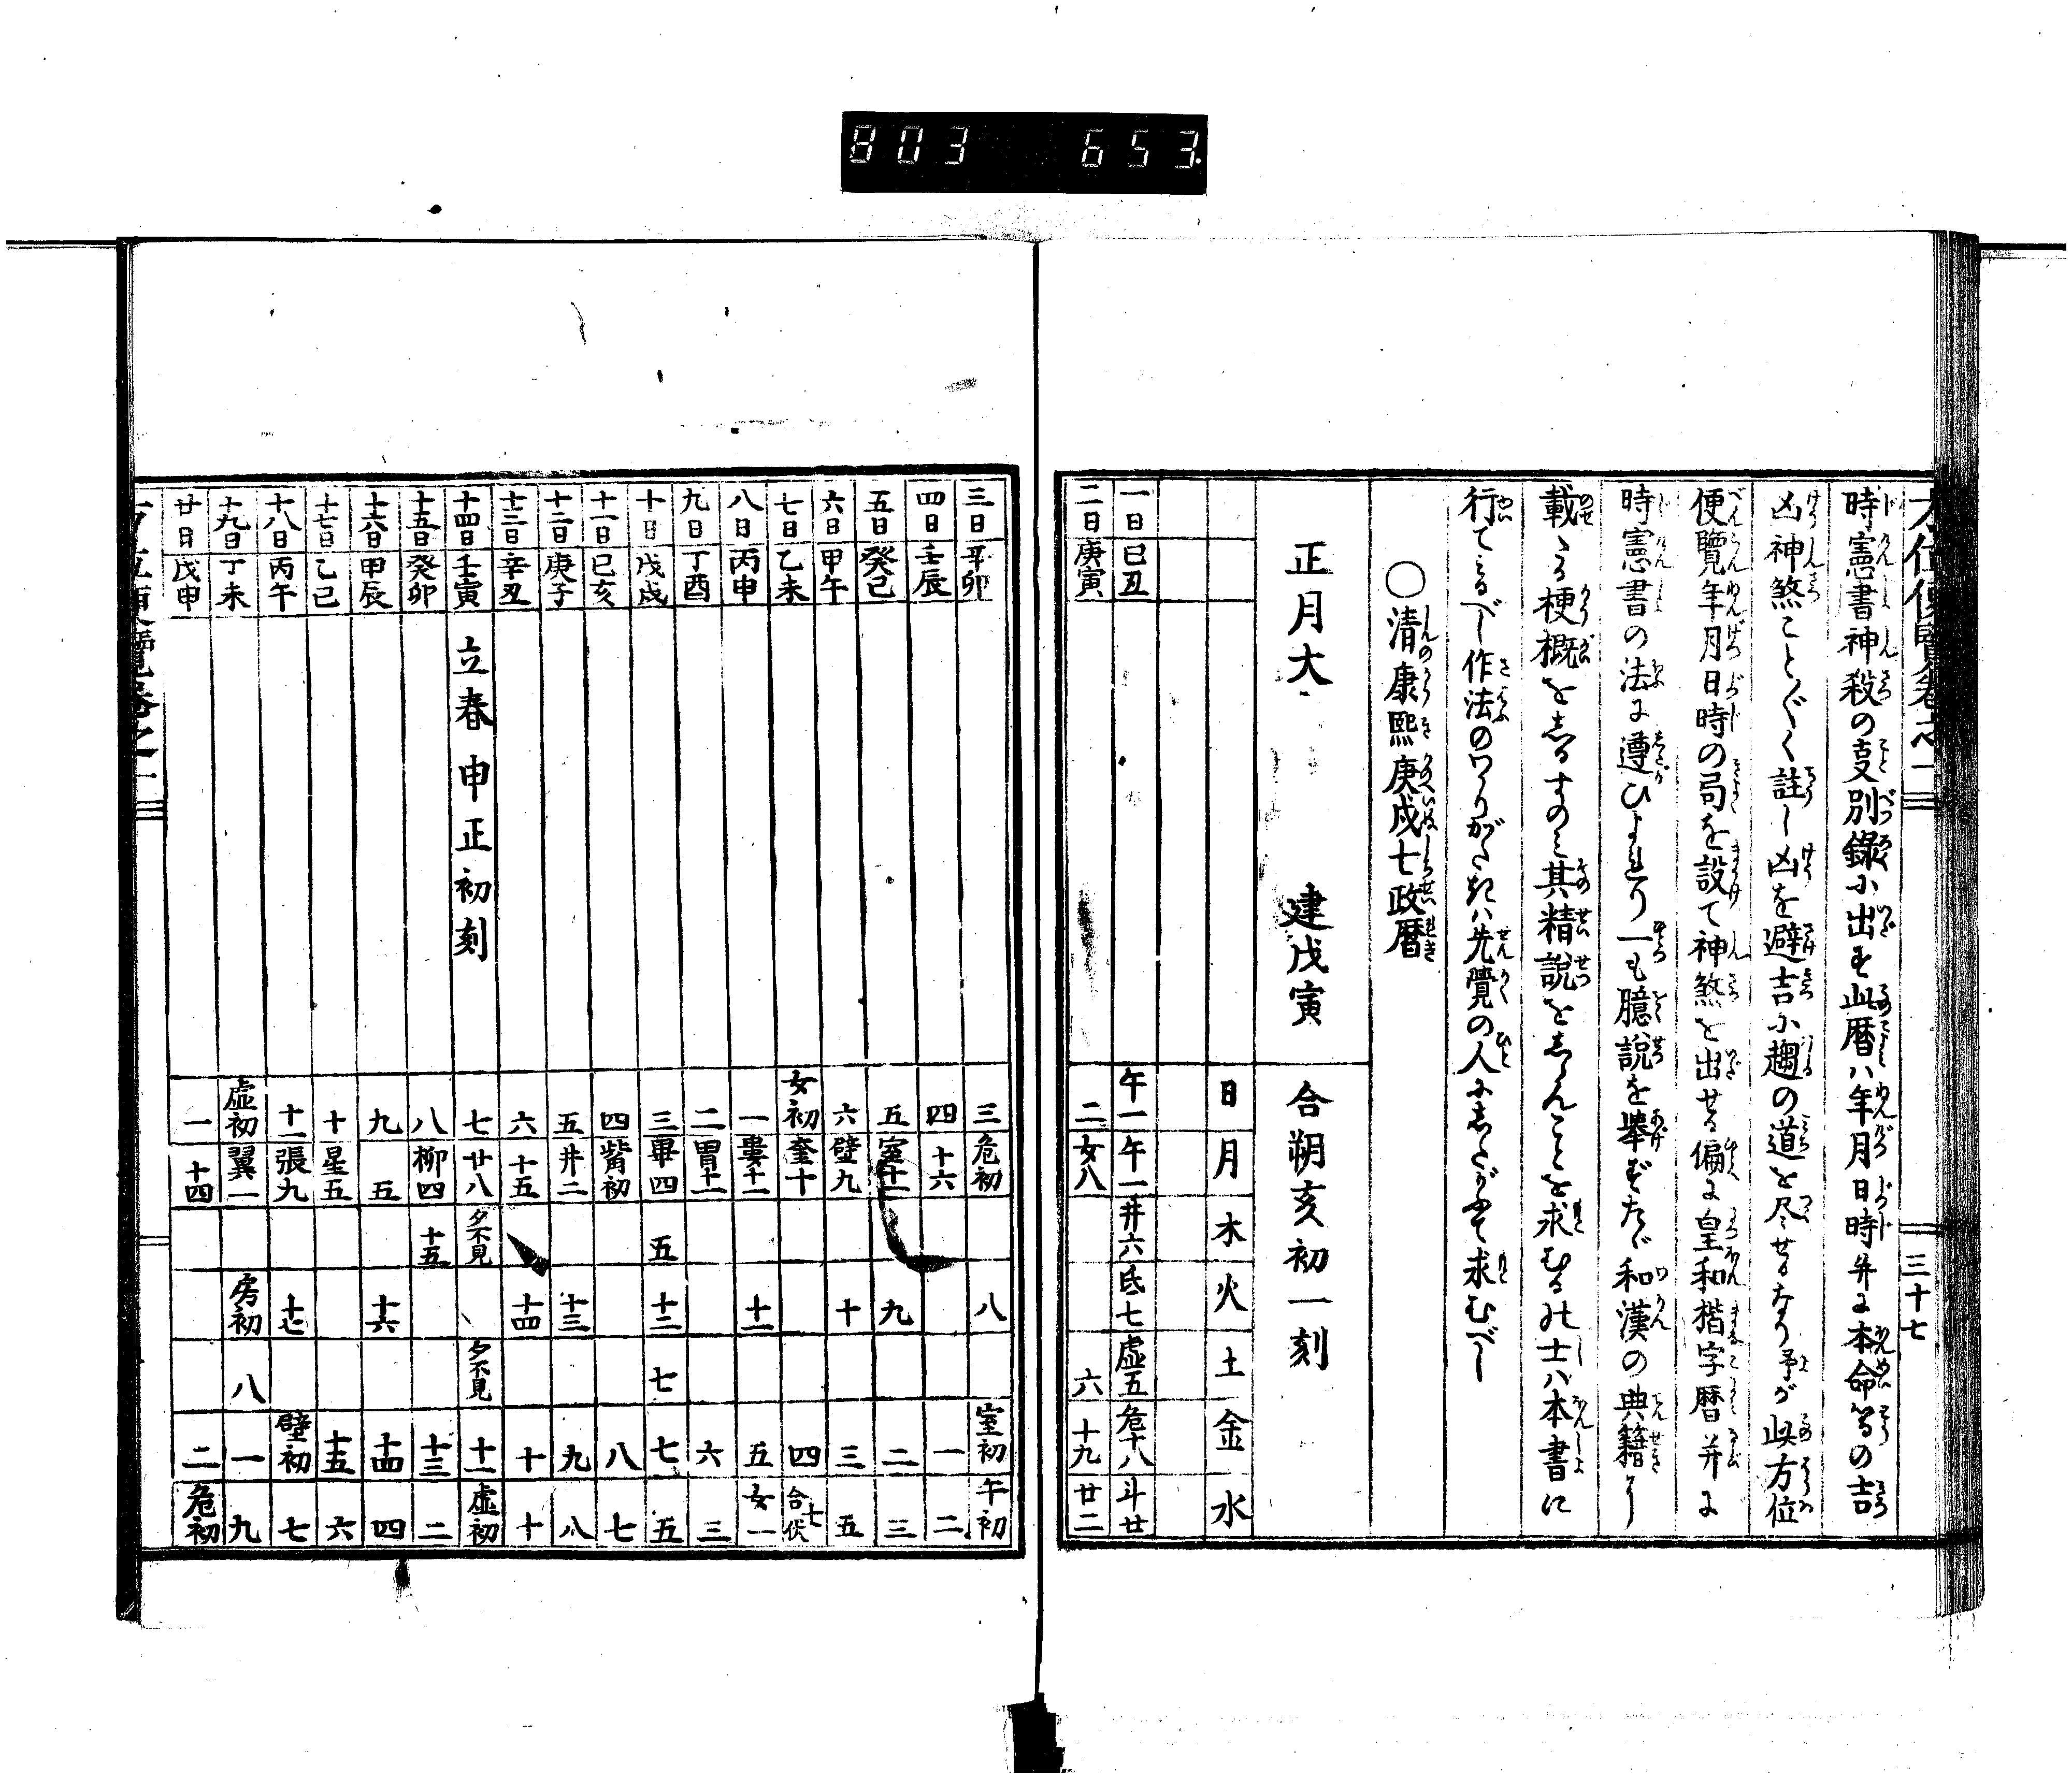 803 653
三十七
時憲書神殺の支別錄小出も此暦ハ年月日時并に本命等の吉
凶神煞こと〲く註し凶を避吉小趨の道を尽せるなり予が此方位
便覽年月日時の局を設て神煞を出せる偏に皇和楷字暦并に
時憲書の法に遵ひよれり一も臆說を舉ずたゞ和漢の典籍に
載る梗概をしるすのミ其精說をしらんことを求むるの士ハ本書に
行てみるべし作法のわかりがたきハ先覺の人にしたがふて求むべし
〇清康熙庚戌七政暦
正月大 建戊寅 合朔亥初一刻
日 月 木 火 土 金 水
一日 己丑 午一 午一 井六 氐七 虛五 危十八 斗廿
二日 庚寅 二 女八 六 十九 廿二
三日 辛卯 三 危初 八 室初 午初
四日 壬辰 四 十六 一 二
五日 癸巳 五 室十一 九 二 三
六日 甲午 六 壁九 十 三 五
七日 乙未 女初 奎十 四 七合伏
八日 丙申 一 婁十一 十一 五 女一
九日 丁酉 二 胃十一 六 三
十日 戊戌 三 畢四 五 十二 七 七 五
十一日 己亥 四 觜初 八 七
十二日 庚子 五 井二 十三 九 八
十三日 辛丑 六 十五 十四 十 十
十四日 壬寅 立春申正初刻 七 廿八 夕不見 夕不見 十一 虛初
十五日 癸卯 八 柳四 十五 十三 二
十六日 甲辰 九 五 十六 十四 四
十七日 乙巳 十 星五 十五 六
十八日 丙午 十一 張九 十七 壁初 七
十九日 丁未 虛初 翼一 房初 八 一 九
廿日 戊申 一 十四 二 危初